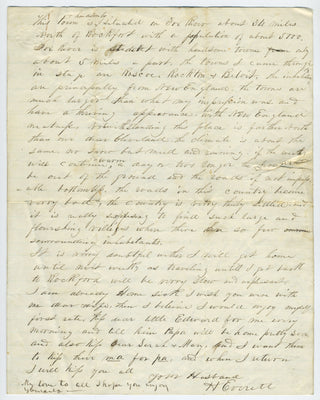 This town is situated on Fox River about 84 miles
North of Rockford with a population of about 5000.
is dotted with handsome towns
about 5 miles a part. the towns I came through
in stage are Roscoe, Rockton & Beloit, the inhabitants
are principally from New England. the towns are
much larger than what my impression was and
have a thriving appearance with New England
neatness. Notwithstanding this place is farther North
than our own the climate is about the
same no snow but mud and raining if the
will continue a day or two longer the
be out of the ground and the roads if not impass-
able bottomless. the roads in this country become
very bad, the country is very thinly settled and
it is really surprising to find such large and
flourishing villages when there are so few
surrounding inhabitants.
It is very doubtful when I will get home
until next week, as traveling until I get back
to Rockford will be very slow and unpleasant
I am already Home sick I wish you were with
me dear wife, then I believe I would enjoy myself
first rate, kiss dear little Edward for me every
morning and tell him Papa will be home pretty soon
and also kiss dear Sarah & Mary, and I want them
to kiss their ma for pa, and when I return
I will kiss you all
Your Husband
H Everett
My love to all I hope you enjoy
yourselves